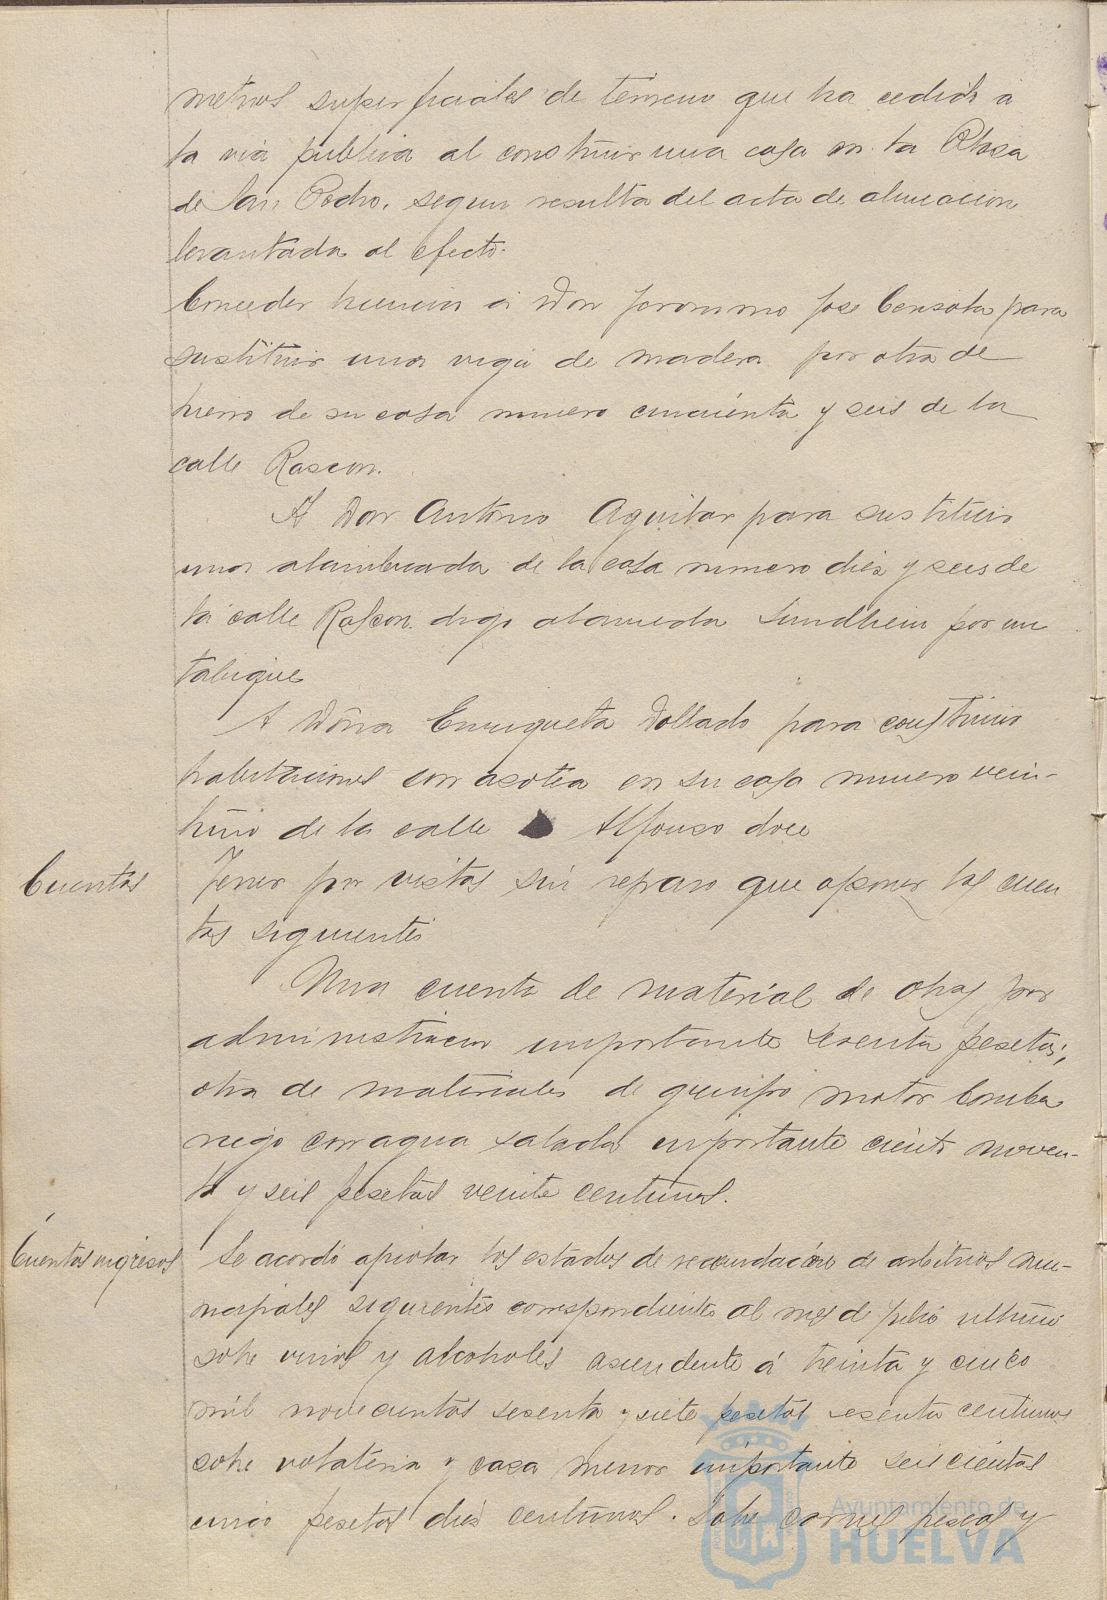 metros superficiales de terreno que ha cedido a
la via publica al construir una casa en la Plaza
de San Pedro, segun resulta del acta de alineacion
levantada al efecto.
Conceder licencia a Don Jeronimo Jose para
sustituir una viga de madera por otra de
hierro de su casa numero cincuenta y seis de la
calle Rascon.
A Don Antonio Aguilar para sustituir
una alambrada de la casa numero diez y seis de
la calle Rascon digo alameda Sundhein por un
tabique
A Doña Enriqueta para construir
habitaciones con azotea en su casa numero vein-
tiuno de la calle Alfonso doce
Cuentas
Tener por vistas sin reparo que oponer las cuen
tas siguientes
Una cuenta de material de obras por
administracion importante sesenta pesetas;
otra de materiales de grupo motor bomba
riego con agua salada importante ciento noven-
ta y seis pesetas veinte centimos.
Cuentas ingresos
Se acordó aprobar los estados de recaudación de arbitrios mu-
nicipales siguientes correspondientes al mes de julio ultimo
sobre vinos y alcoholes ascendente á treinta y cinco
mil novecientas sesenta y siete pesetas sesenta centimos
sobre volateria y caza menor importante seiscientas
cinco pesetas diez centimos. Sobre carnes pescas y
Ayuntamiento de
HUELVA